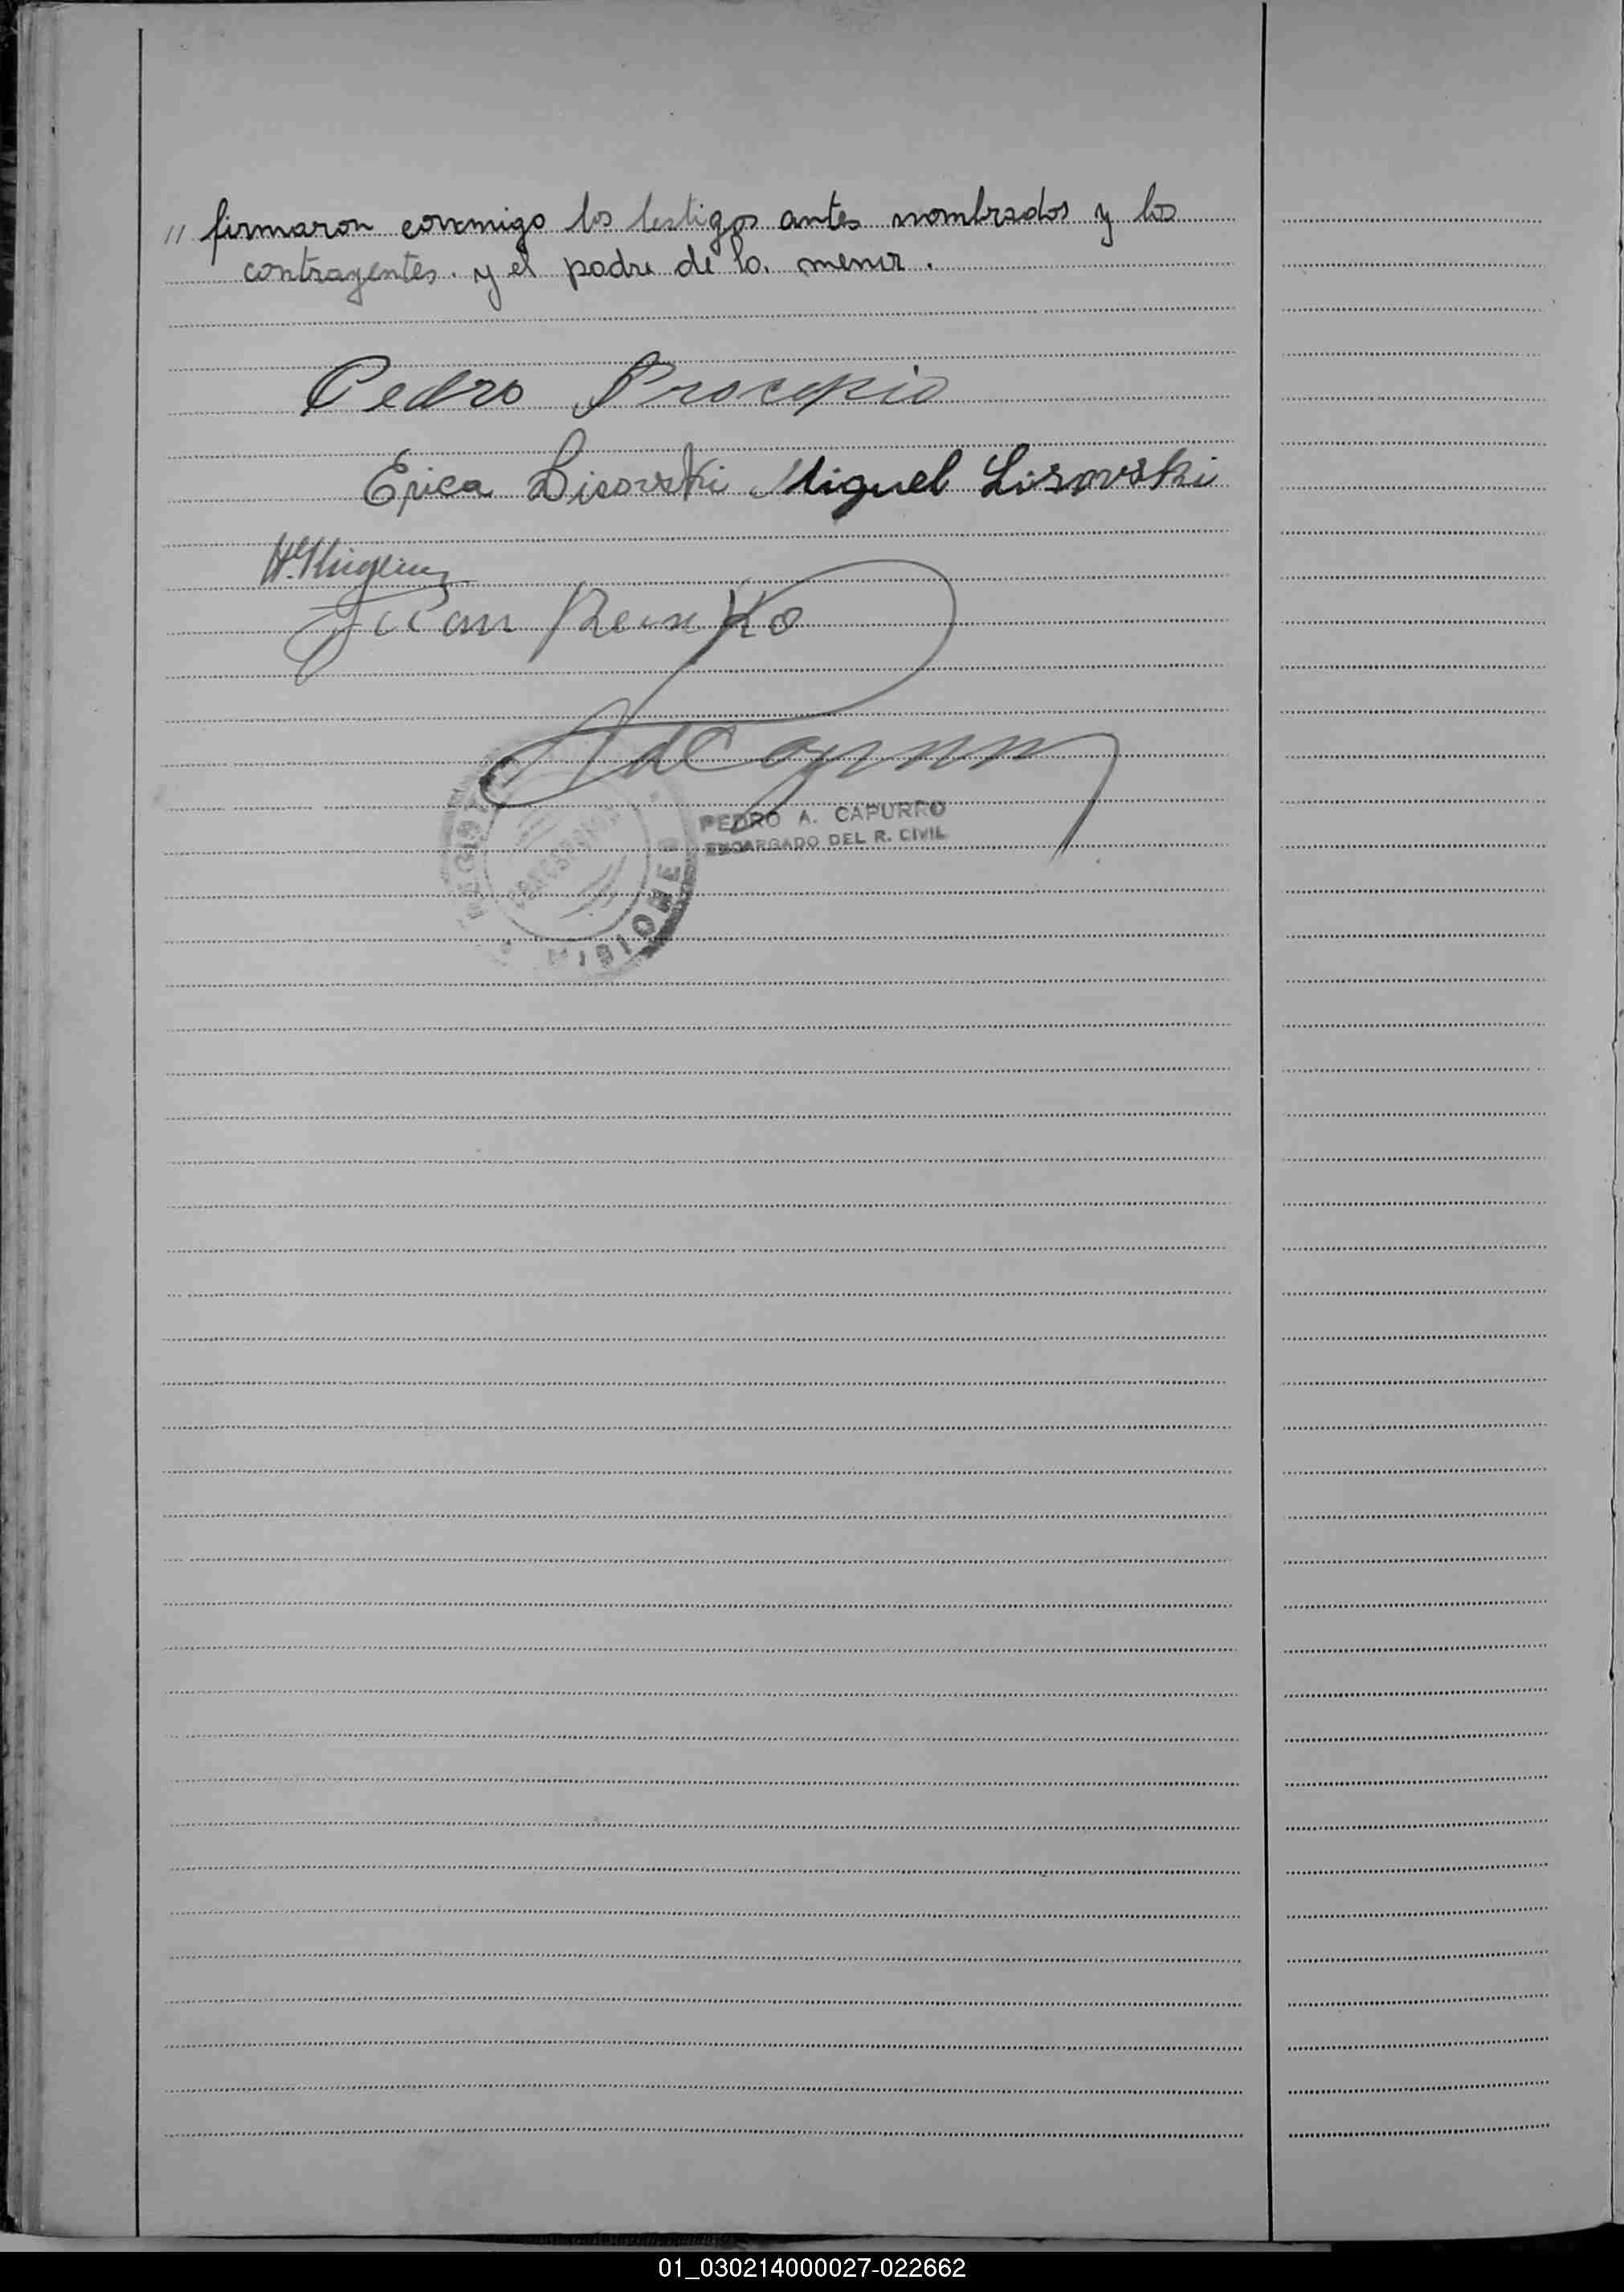 " firmaron conmigo los testigos antes nombrados y los
contragentes. y el padre de la menor.
Pedro Procopio
Erica Lisovski Miguel Lisovski
Juan
PEDRO A. CAPURRO
ENCARGADO DEL R. CIVIL
MISIONES
01_030214000027-022662